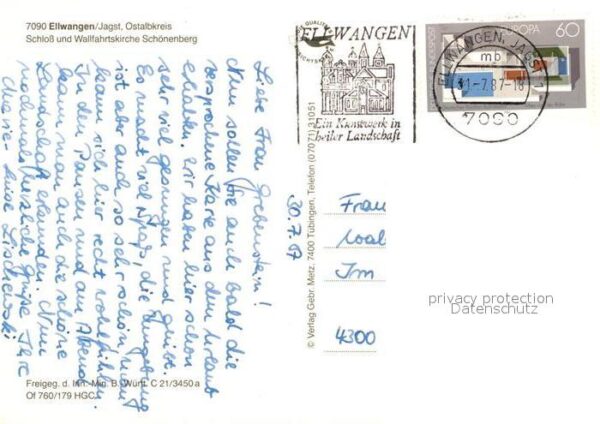 7090 Ellwangen/Jagst, Ostalbkreis
Schloß und Wallfahrtskirche Schönenberg
Liebe Frau Grebenstein!
Nun sollen Sie auch bald die
versprochene Karte aus dem Urlaub
erhalten. Wir haben hier schon
sehr viel gesungen und geübt.
Es macht viel Spaß, die Umgebung
ist aber auch so sehr schön, man
kann sich hier recht wohlfühlen.
In den Pausen und am Abend
kann man auch die schöne
Landschaft erkunden. Nun
nochmals herzliche Grüße Ihre
Luise Lischewski
30.7.87
Freigeg. d. Inn.-Min. B. Württ. C 21/3450 a
Of 760/179 HGC
© Verlag Gebr. Metz, 7400 Tübingen, Telefon (07071) 31051
ELLWANGEN
Ein Kunstwerk in
heiler Landschaft
ELLWANGEN, JAGST 1
mb
31.-7.87-18
7090
EUROPA
60
Frau
Wal
Im
4300
privacy protection
Datenschutz